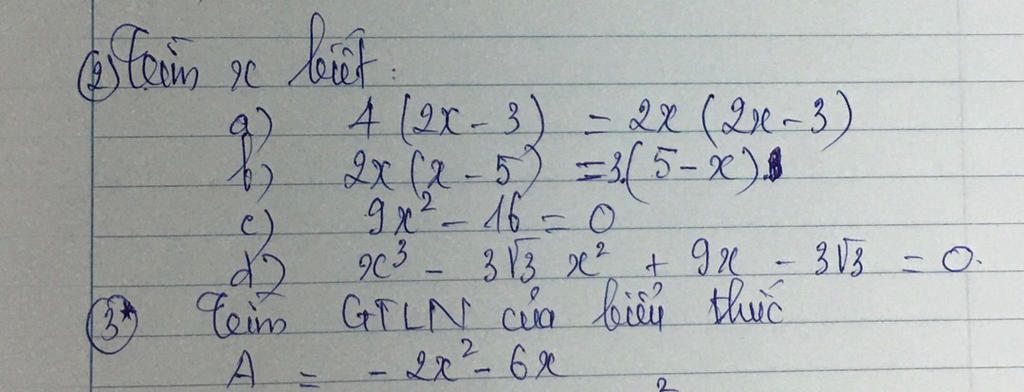 ② Tìm x biết:
a) 4(2x - 3) = 2x(2x - 3)
b) 2x(x - 5) = 3.(5 - x)
c) 9x² - 16 = 0
d) x³ - 3√3 x² + 9x - 3√3 = 0.
③* Tìm GTLN của biểu thức
A = - 2x² - 6x
2